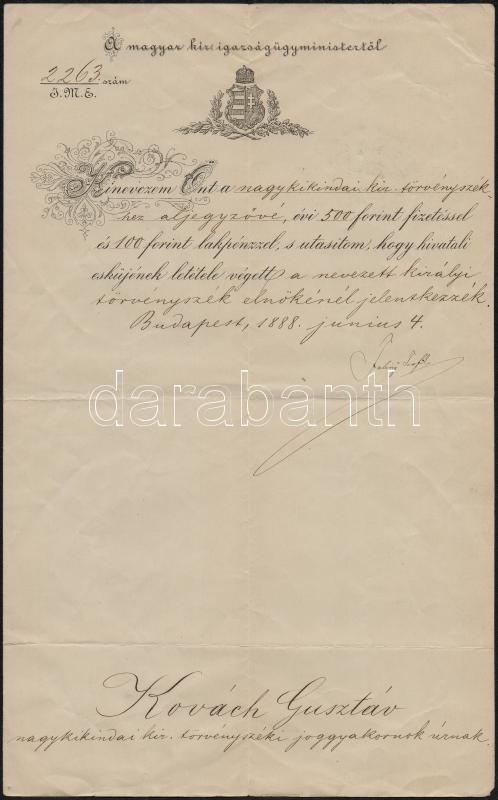 A magyar kir. igazságügyministertől
2263. szám
I.M.E.
Kinevezem Önt a nagykikindai kir. törvényszék-
hez aljegyzővé, évi 500 forint fizetéssel
és 100 forint lakpénzzel, s utasitom, hogy hivatali
esküjének letétele végett a nevezett királyi
törvényszék elnökénél jelentkezzék.
Budapest, 1888. junius 4.
darabanth
Kovách Gusztáv
nagykikindai kir. törvényszéki joggyakornok úrnak.